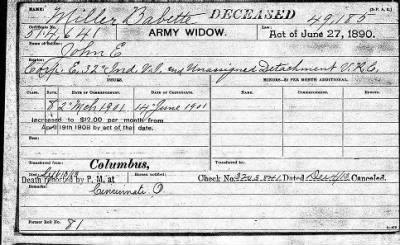 NAME: Miller Babette DECEASED 49,185
514,641 ARMY WIDOW. Act of June 27, 1890.
Name of Soldier:
John E.
Service: Corp. E, 32" Ind. Vol. and Unassigned Detachment V.R.C.
ISSUES. MINORS—$2 PER MONTH ADDITIONAL.
CLASS. RATE. DATE OF COMMENCEMENT. DATE OF CERTIFICATE. COMMENCING.
8 2" Mch 1901 14" June 1901
Increased to $12.00 per month from
April 19th 1908 by act of the date.
Transferred from Columbus,
Death reported by P. M. at Check No. Dated Canceled.
Remarks: Cincinnati O
Former Roll No. 81